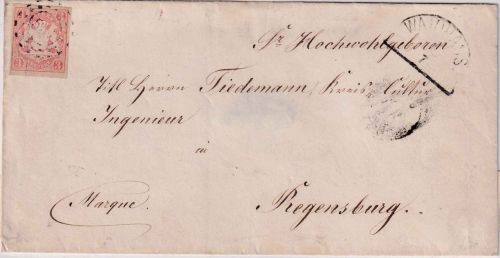 3 3
Sr. Hochwohlgeboren
Herrn Tiedemann, Kreis-Cultur
Ingenieur
in
Marque.
Regensburg.